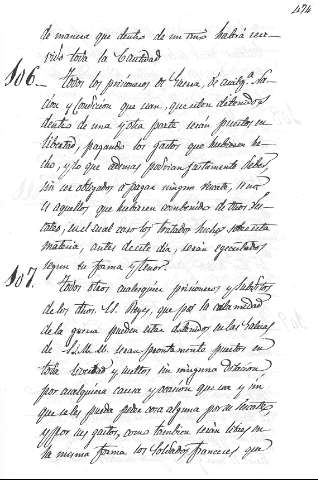 474
de manera que dentro de un mes habrá reci-
vido toda la Cantidad
106.
Todos los prisioneros de Guerra, de cualq.ª Na-
cion y Condicion que sean, que esten detenidos
dentro de una y otra parte serán puestos en
libertad, pagando los gastos que hubieren he-
cho, y lo que ademas podrian justamente deber,
sin ser obligados a pagar ningun rescate, sino
es aquellos que hubieren combenido de dhos res-
cates, en el cual caso los tratados hechos sobre esta
materia, antes de este dia, serán egecutados
segun su forma y tenor.
107.
Todos otros cualesquier prisioneros y subditos
de los dhos. S.S. Reyes, que por la calamidad
de la guerra pueden estar detenidos en las Galeras
de S.S. M.M. seran prontamente puestos en
toda livertad y sueltos sin ninguna dilacion
por cualquiera causa y ocasion que sea y sin
que se les pueda pedir cosa alguna por su rescate
y por sus gastos, como tambien serán libres en
la misma forma los Soldados franceses que